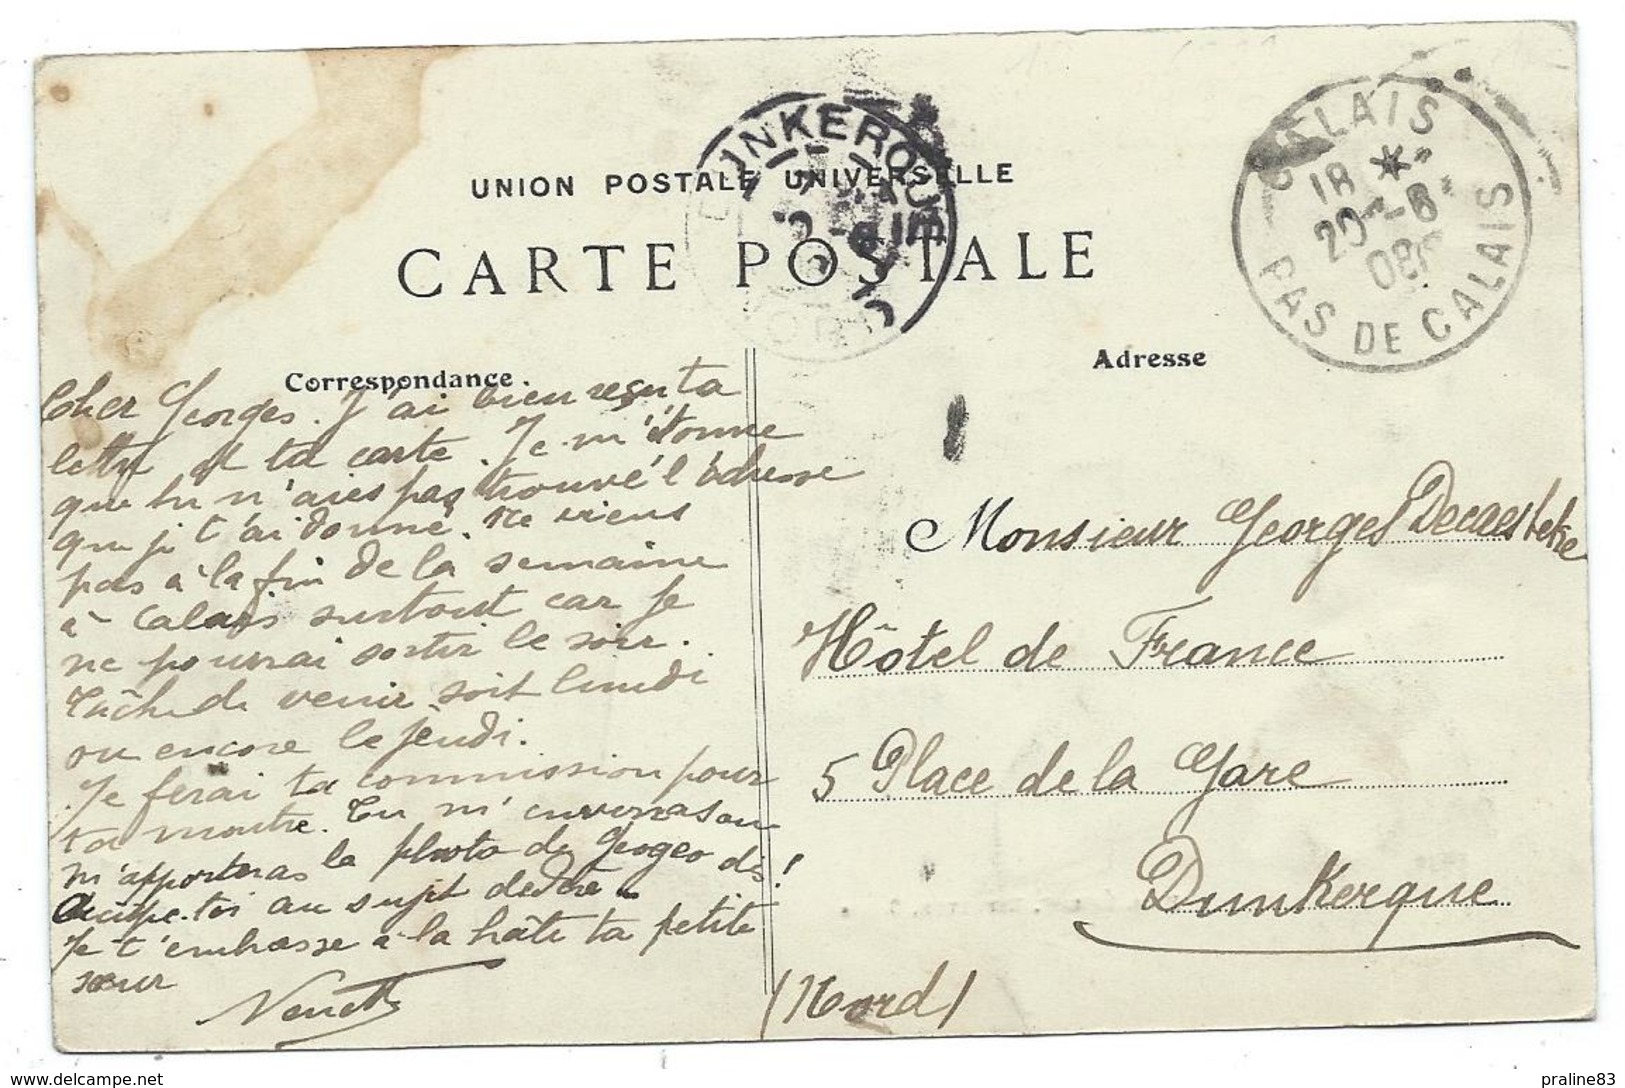 UNION POSTALE UNIVERSELLE
CARTE POSTALE
DUNKERQUE
CALAIS
18 *
20 - 8
08
PAS DE CALAIS
Correspondance.
Adresse
Cher Georges. J'ai bien reçu ta
lettre et ta carte. Je m'étonne
que tu n'aies pas trouvé l'adresse
que je t'ai donné. Ne viens
pas à la fin de la semaine
à Calais surtout car je
ne pourrai sortir le soir.
Tâche de venir soit lundi
ou encore le jeudi.
Je ferai ta commission pour
ta montre. Tu m'enverras ou
m'apporteras la photo de Geogeo dis!
au sujet
Je t'embrasse à la hâte ta petite
sœur
Monsieur Georges Decaesteke
Hôtel de France
5 Place de la Gare
Dunkerque
(Nord)
praline83